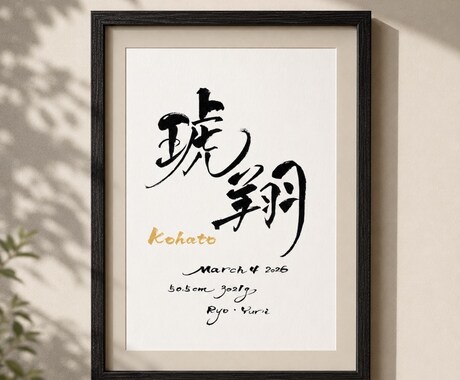 琥翔
Kohato
March 4 2026
50.5cm 3021g
Ryo・Yurii